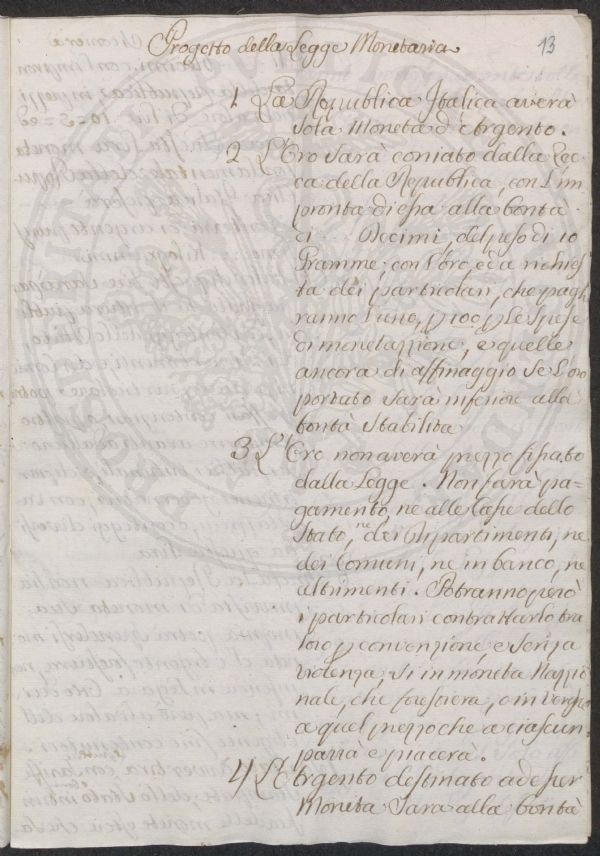 Progetto della Legge Monetaria
13
1 La Repubblica Italica averà
sola Moneta d'Argento.
2 L'Oro sarà coniato dalla Zec-
ca della Repubblica, con l'im
pronta di essa alla bontà
di Decimi, del peso di 10
Gramme; con l'oro, ed a richies
ta dei particolari, che paghe
ranno l'uno, p 100 p le spese
di monetazzione, e quelle
ancora di affinaggio se l'oro
portato sarà inferiore alla
bontà stabilita
3 L'Oro non averà prezzo fissato
dalla Legge. Non farà pa-
gamento, ne alle Casse dello
Stato, ne dei Dipartimenti, ne
dei Comuni, ne in banco, ne
altrimenti. Potranno però
i particolari contrattarlo tra
loro p convenzione, e senza
violenza, sì in moneta Nazzio
nale, che forestiera, o in verghe
a quel prezzo che a ciascun
parrà e piacerà.
4 L'Argento destinato ad esser
Moneta sarà alla bontà